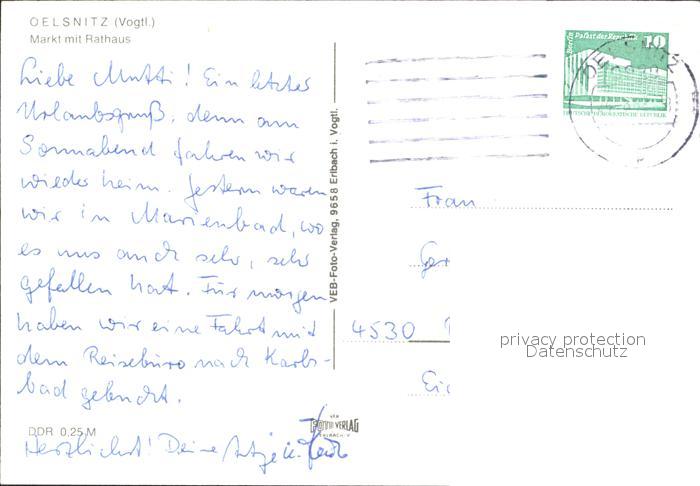 OELSNITZ (Vogtl.)
Markt mit Rathaus
Liebe Mutti! Ein letzter
Urlaubsgruß, denn am
Sonnabend fahren wir
wieder heim. Gestern waren
wir in Marienbad, wo
es uns auch sehr, sehr
gefallen hat. Für morgen
haben wir eine Fahrt mit
dem Reisebüro nach Karls-
bad gebucht.
Herzlichst! Deine Antje u.
DDR 0,25 M
VEB-Foto-Verlag, 9658 Erlbach i. Vogtl.
VEB
FOTO VERLAG
ERLBACH-V
Berlin Palast der Republik 10
DEUTSCHE DEMOKRATISCHE REPUBLIK
Frau
4530
privacy protection
Datenschutz